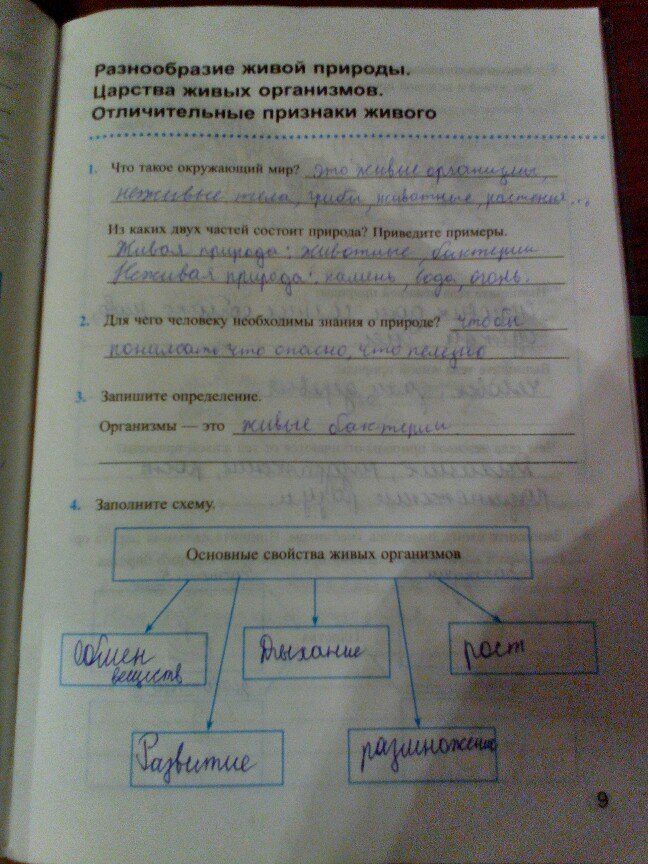 Разнообразие живой природы.
Царства живых организмов.
Отличительные признаки живого
1. Что такое окружающий мир? это живые организмы,
неживые тела, грибы, животные, растения...
Из каких двух частей состоит природа? Приведите примеры.
Живая природа: животные, бактерии
Неживая природа: камень, вода, огонь.
2. Для чего человеку необходимы знания о природе? чтобы
что опасно, что полезно
3. Запишите определение.
Организмы — это живые бактерии
4. Заполните схему.
Основные свойства живых организмов
Обмен
веществ
Дыхание
рост
Развитие
размножение
9